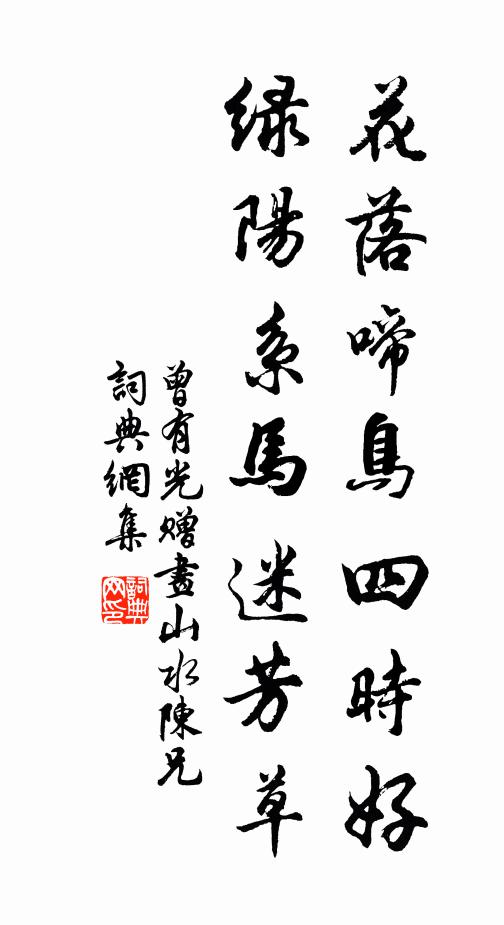 花落啼鳥四時好
緑陽系馬迷芳草
曾有光贈畫山水陳兄
詞典網集
詞典网印